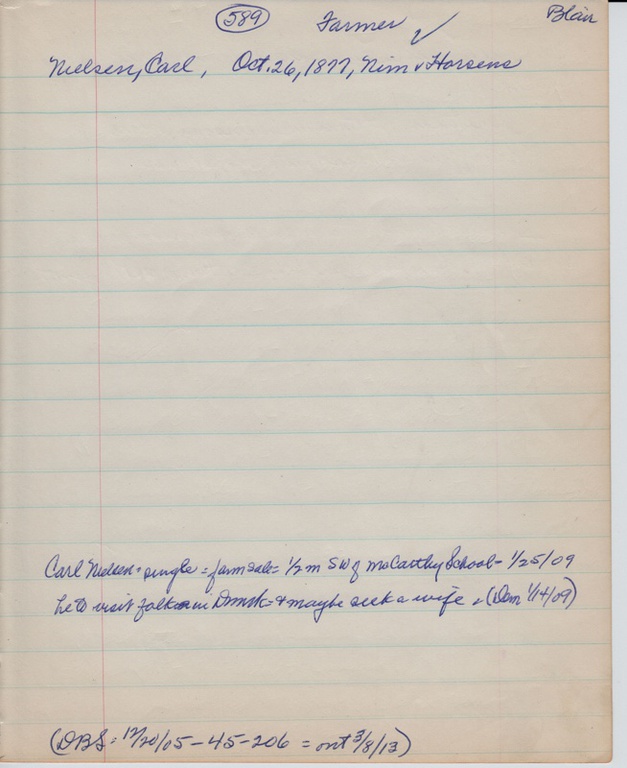 589 Farmer ✓ Blair
Nielsen, Carl, Oct. 26, 1877, Nim v Horsens
Carl Nielsen = single = farm sale = 1/2 m SW of McCarthy School - 1/25/09
he to visit folks in Dnmk = & maybe seek a wife = (Dem 1/14/09)
(DBS: 12/20/05 - 45 - 206 = out 3/8/13)